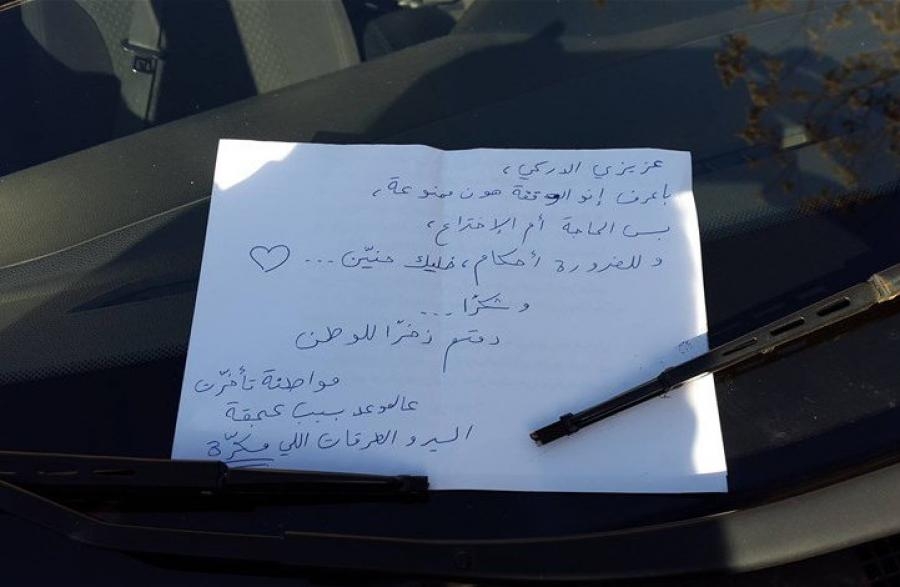 عزيزي الدركي،
بأعرف إنو الوقفة هون ممنوعة،
بس الحاجة أم الإختراع،
و للضرورة أحكام، خليك حنيّن ...
و شكرًا ...
دمتم ذخرًا للوطن
مواطنة تأخرّت
عالموعد بسبب عجقة
السير و الطرقات اللي مسكرّة